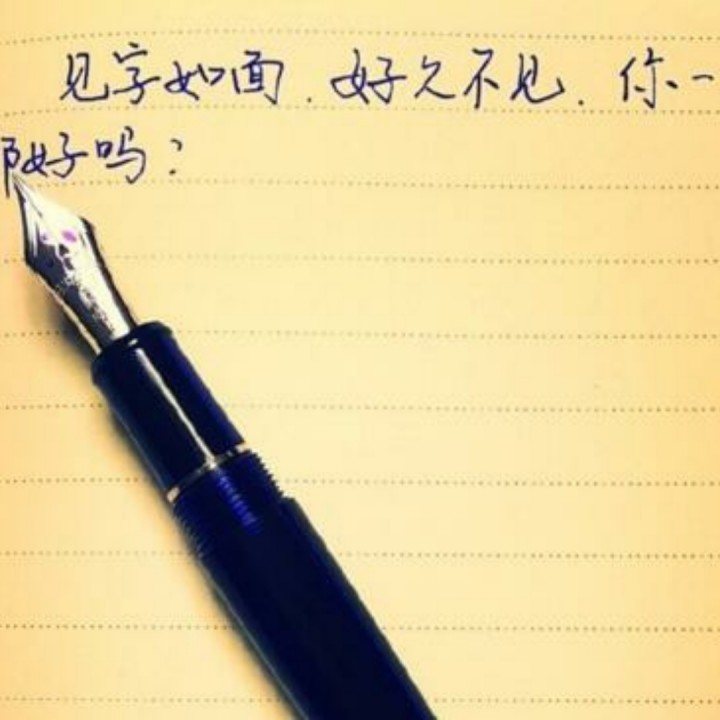 见字如面.好久不见.你一
好吗?